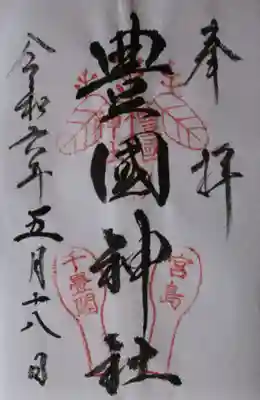 奉拝
豊國神社
宮島
千畳閣
令和六年五月十八日